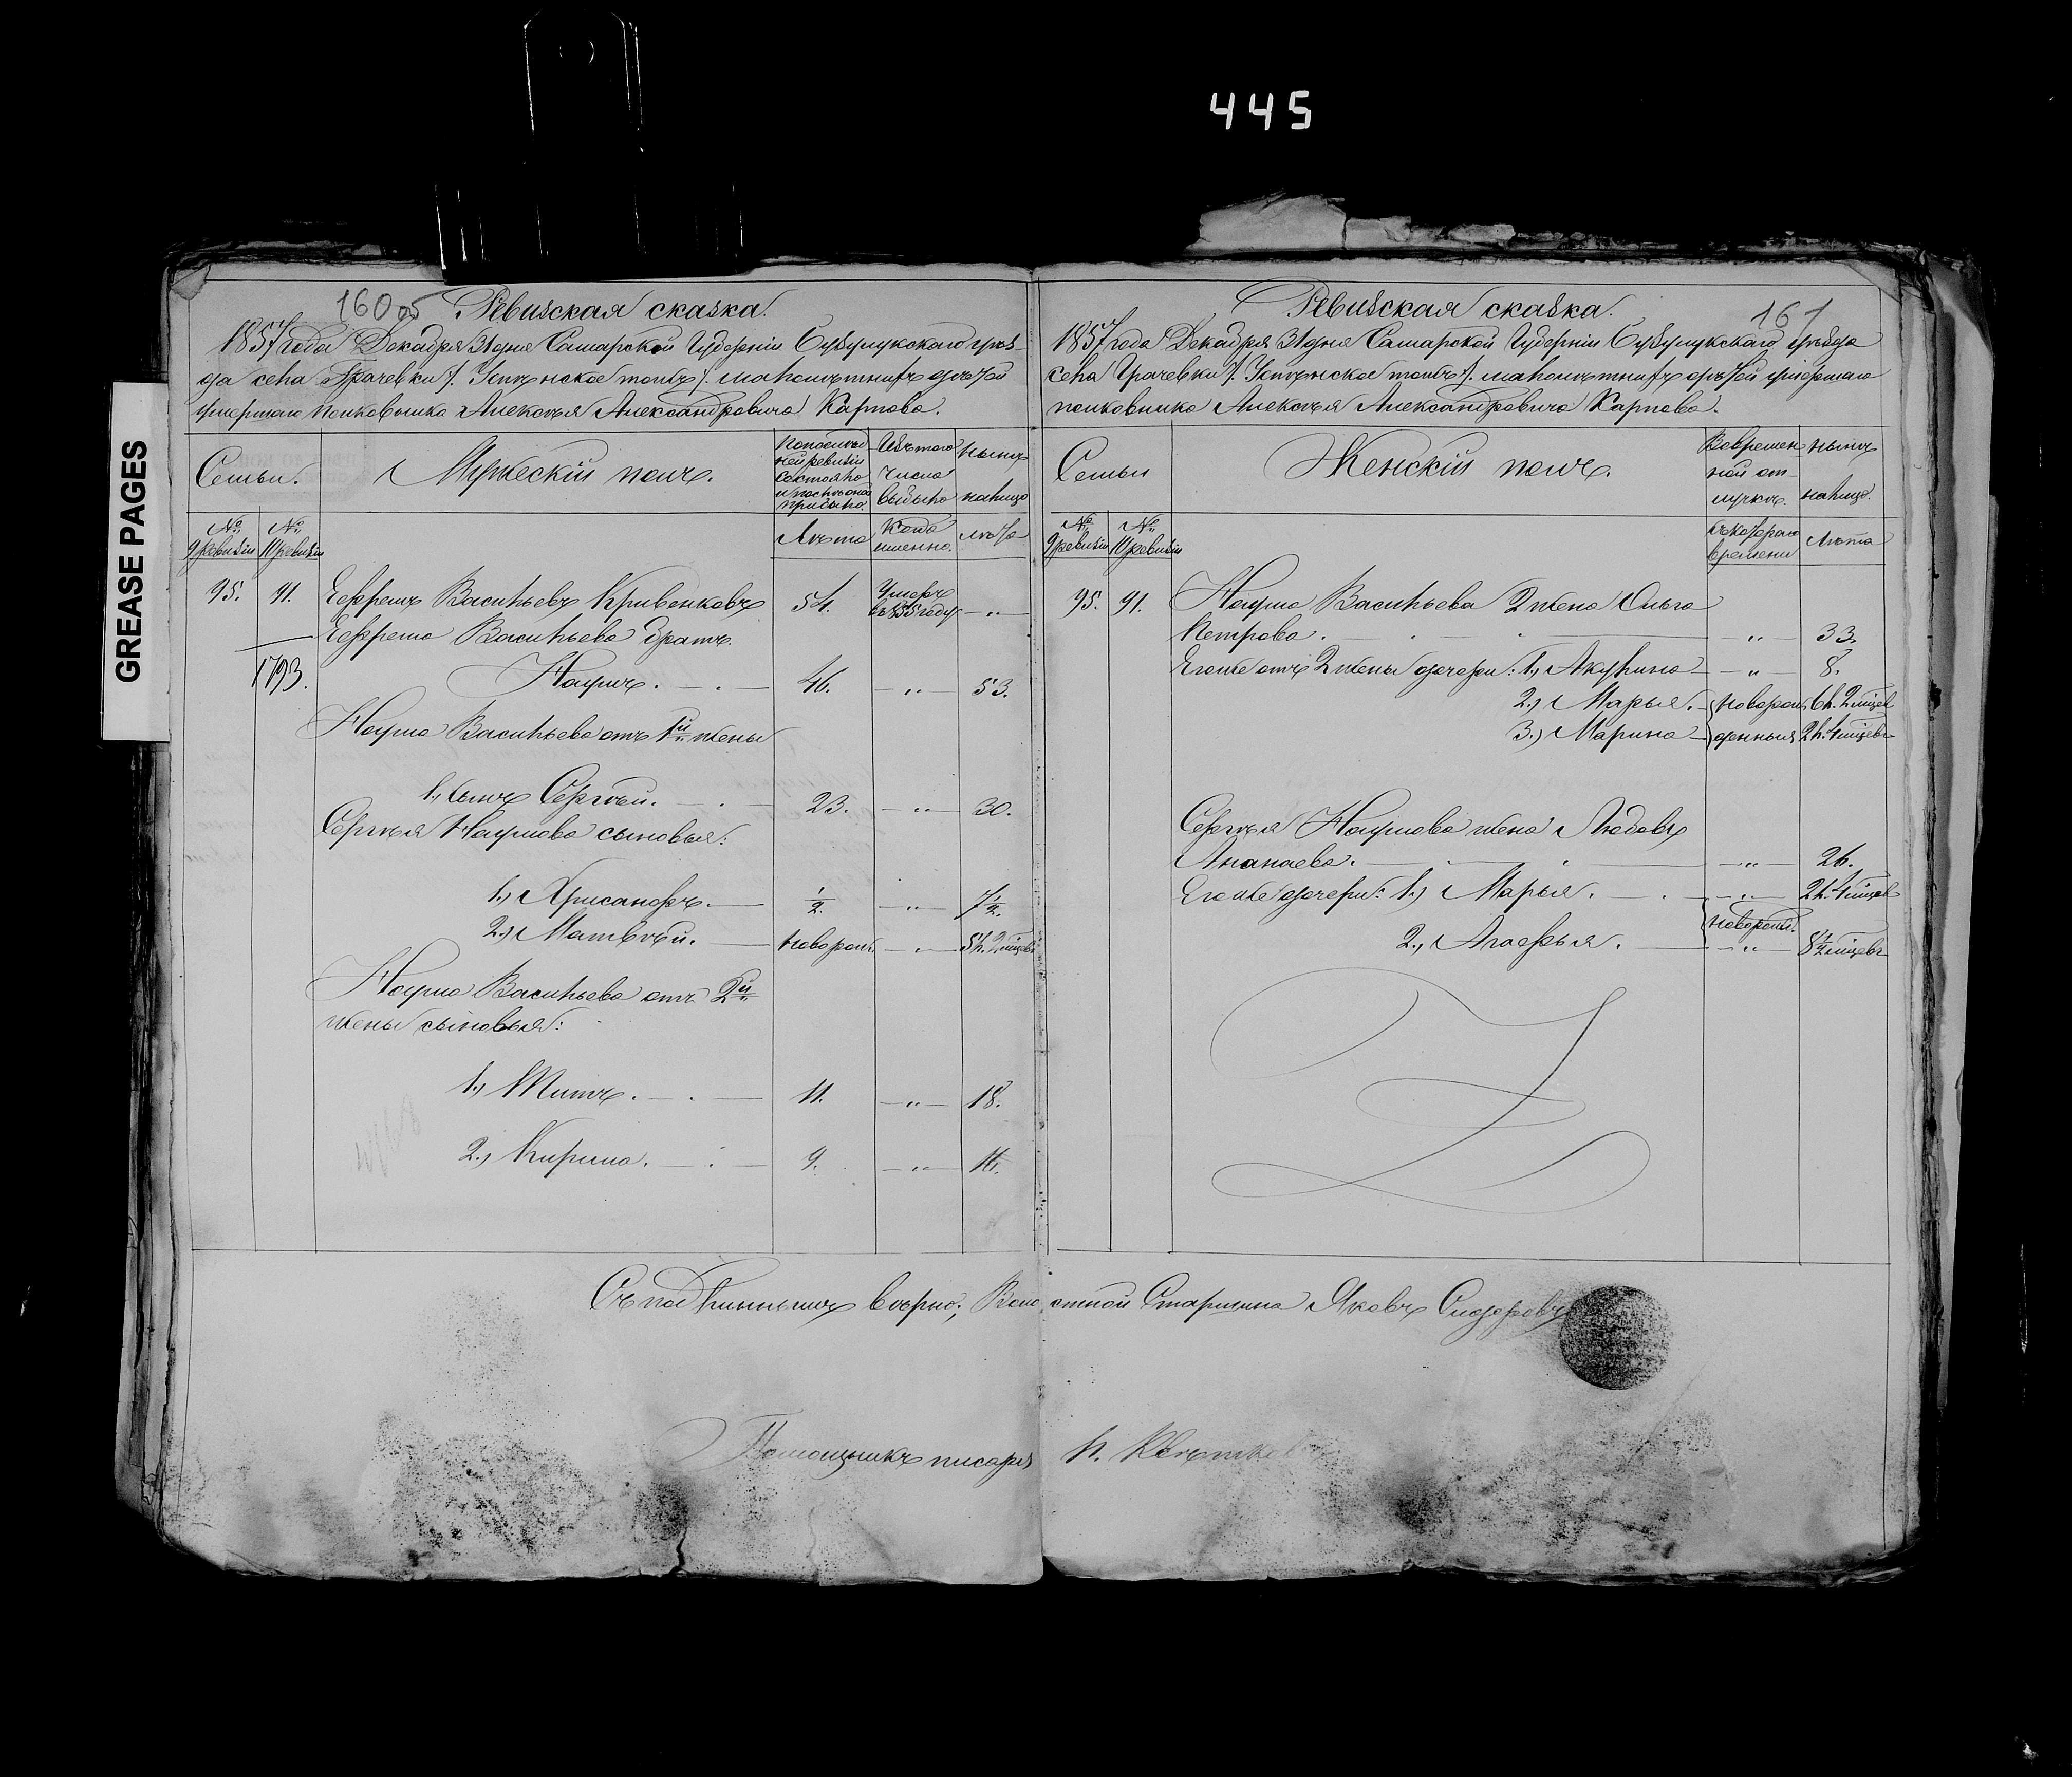 445
GREASE PAGES
160об
Ревизская сказка.
1857 года Декабря 31 дня Самарской Губерніи Бузулукскаго уѣз-
да села Грачевки /. Успѣнское тожъ /. малолѣтныхъ дѣтей
умершаго полковника Алексѣя Александровича Карпова.
Семьи. Мужескій полъ. Попослѣд ней ревизіи состояло и послѣ оной прибыло. Изъ того числа выбыло ныне налицо
№ 9 ревизіи № 10 ревизіи Лѣта Когда именно. лѣта
95. 91. Ефремъ Васильевъ Кривенковъ 54. Умеръ въ 1855 году — „ —
Ефрема Васильева братъ.
1793. Наумъ. 46. — „ — 53.
Наума Васильева отъ 1й жены
1., сынъ Сергѣй. 23. — „ — 30.
Сергѣя Наумова сыновья:
1., Хрисанфъ. ½. — „ — 7½.
2., Матвѣй. новорож. — „ — 5 л. 2 мѣсяц
Наума Васильева отъ 2й
жены сыновья:
1., Титъ. 11. — „ — 18.
2., Кирила. 9. — „ — 16.
161
Ревизская сказка.
1857 года Декабря 31 дня Самарской Губерніи Бузулукскаго уѣзда
села Грачевки /. Успѣнское тожъ /. малолѣтныхъ дѣтей умершаго
полковника Алексѣя Александровича Карпова.
Семьи Женскій полъ. Вовремен ной от лучкѣ. нынѣ налицо.
№ 9 ревизіи № 10 ревизіи съкотораго времени Лѣта
95. 91. Наума Васильева 2 жена Ольга
Петрова. — „ — 33.
Егоже отъ 2 жены дочери: 1., Акулина — „ — 8.
2., Марья. новорож 6 л. 2 мѣсяц
3., Марина денныя 2 л. 4 мѣсяц
Сергѣя Наумова жена Любовь
Ананаева. — „ — 26.
Егоже дочери: 1., Марья. — „ — 2 л. 4 мѣсяц
2., Агаѳья. новорожд. — „ — 8½ мѣсяц
Съ подлиннымъ вѣрно; Волостной Старшина Яковъ Сидоровъ
Помощникъ писаря